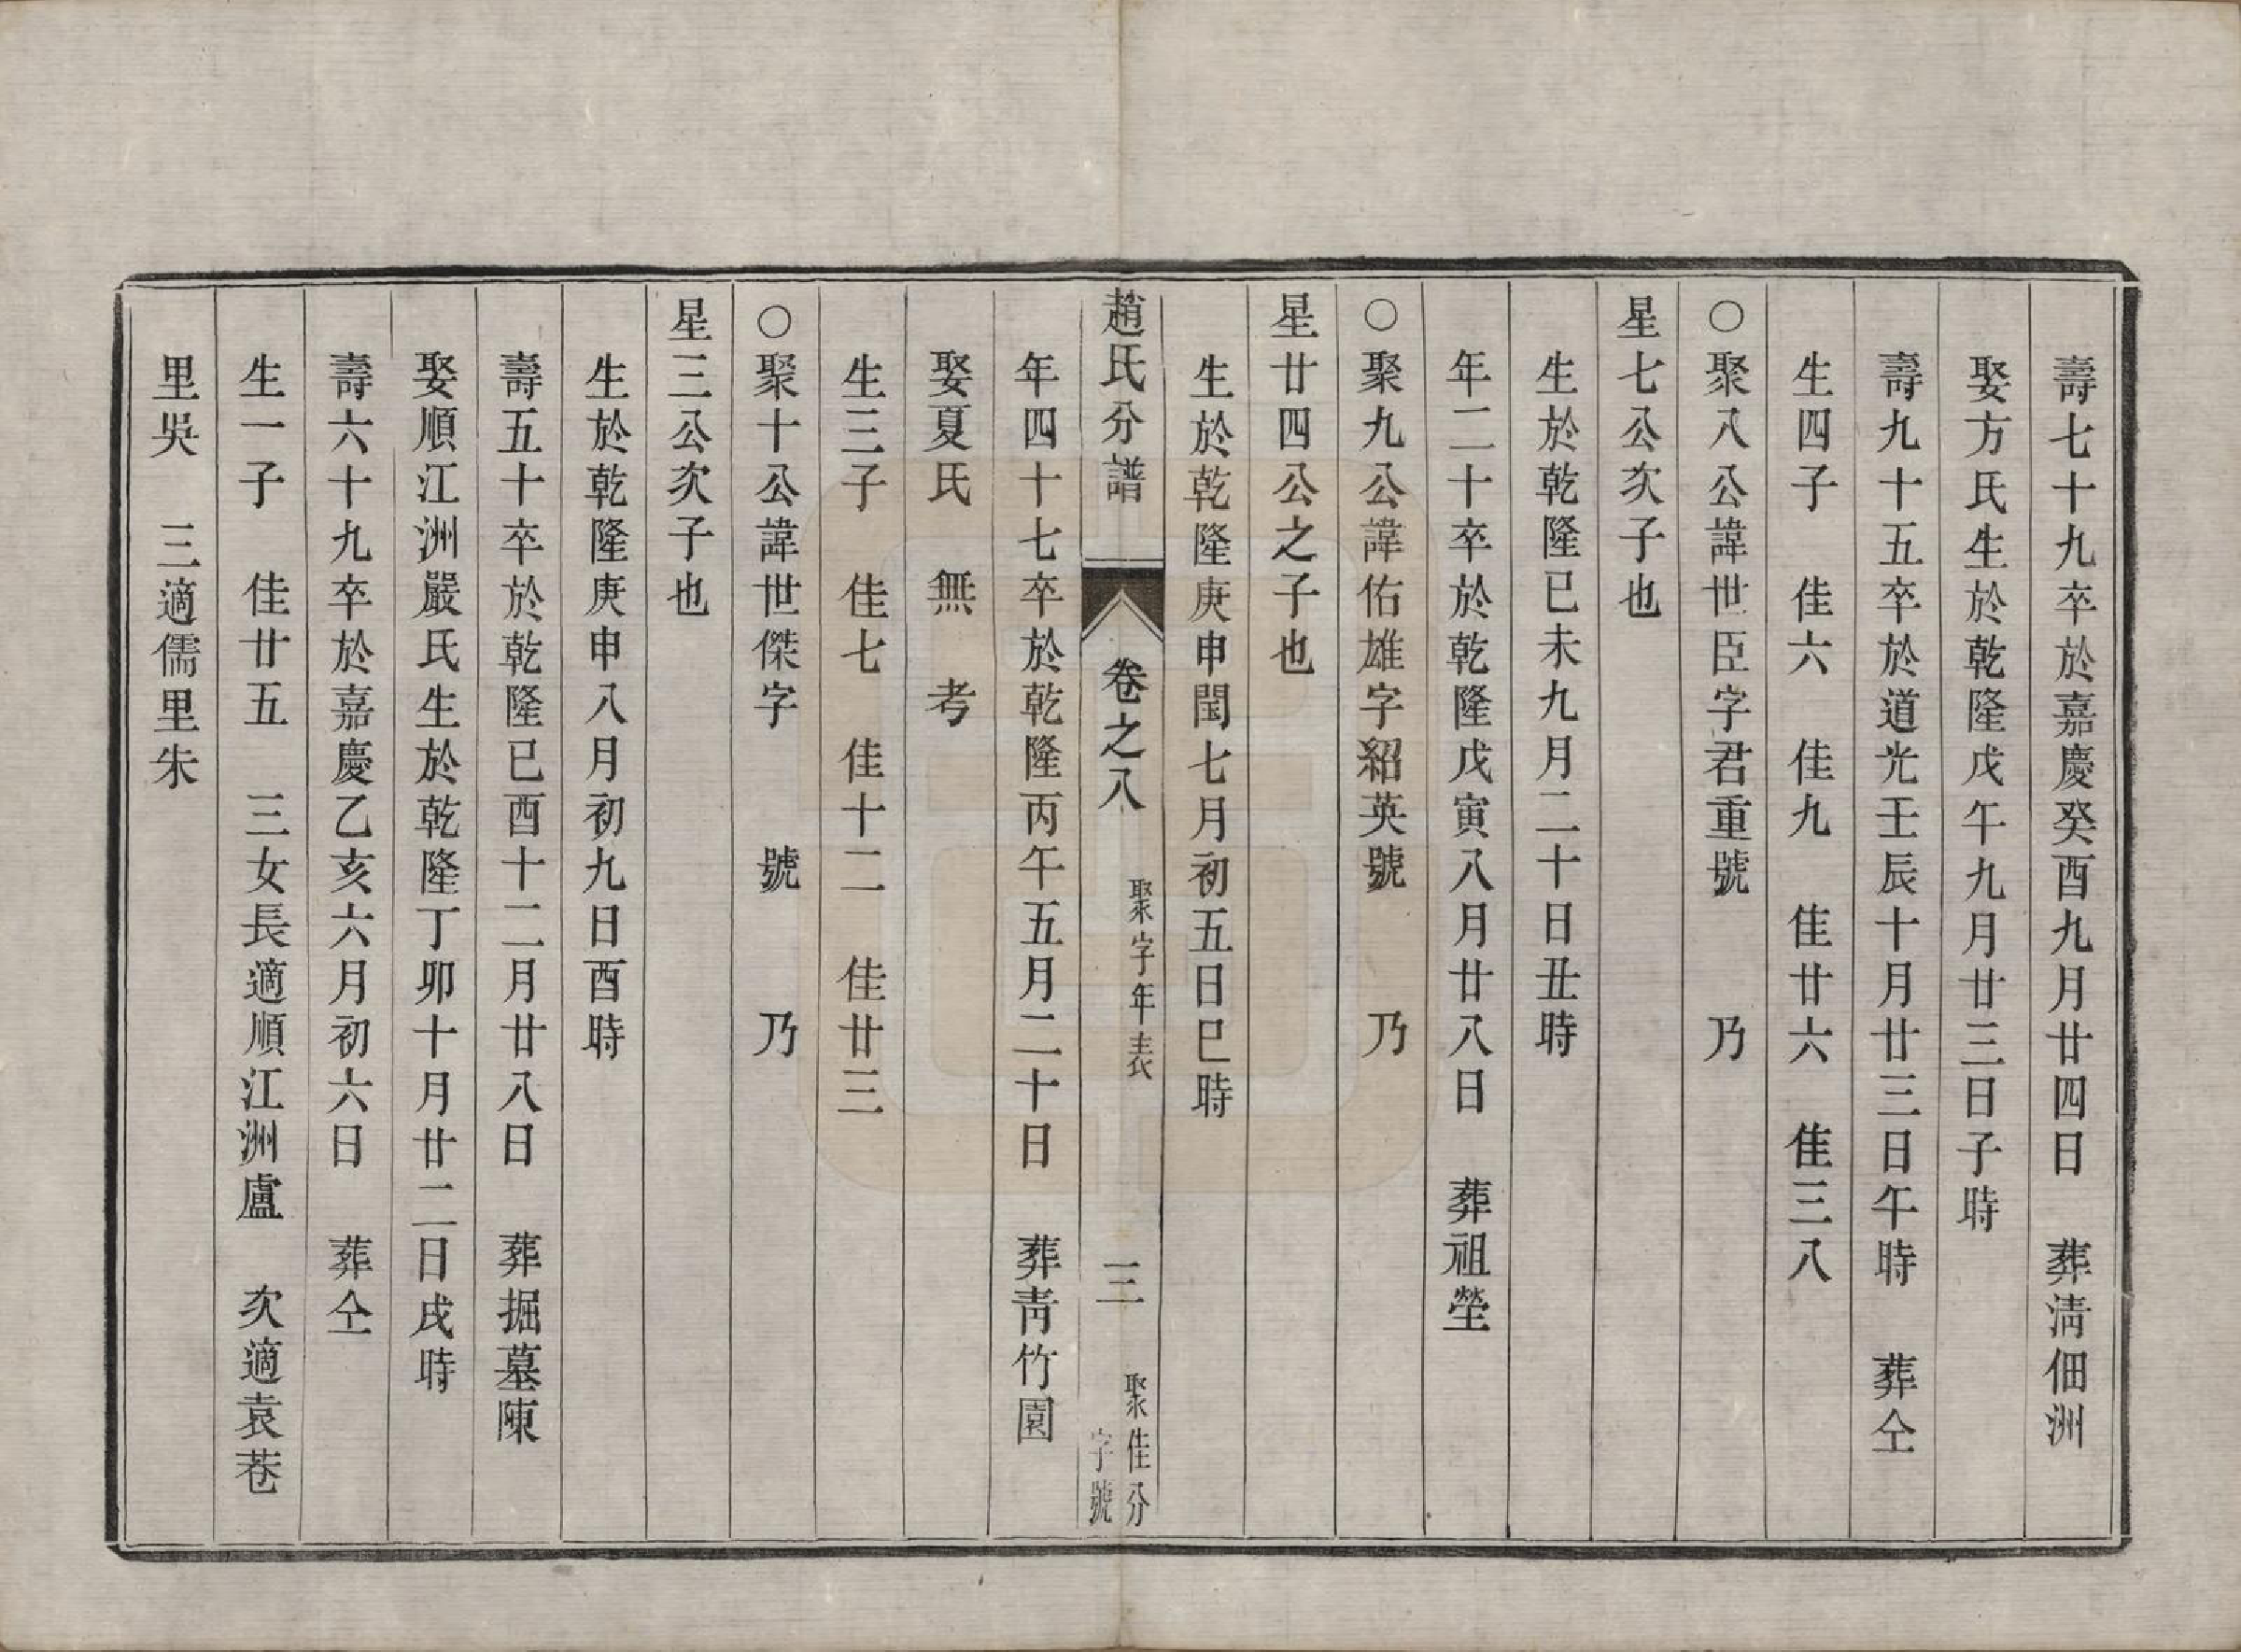 壽七十九卒於嘉慶癸酉九月廿四日　葬淸佃洲
娶方氏生於乾隆戊午九月廿三日子時
壽九十五卒於道光壬辰十月廿三日午時　葬仝
生四子　佳六　佳九　佳廿六　佳三八
○聚八公諱世臣字君重號　　乃
星七公次子也
生於乾隆已未九月二十日丑時
年二十卒於乾隆戊寅八月廿八日　葬祖塋
○聚九公諱佑雄字紹英號　　乃
星廿四公之子也
生於乾隆庚申閏七月初五日巳時
趙氏分譜　卷之八　聚字年表　三　聚佳分字號
年四十七卒於乾隆丙午五月二十日　葬靑竹園
娶夏氏　無　考
生三子　佳七　佳十二　佳廿三
○聚十公諱世傑字　　號　　乃
星三公次子也
生於乾隆庚申八月初九日酉時
壽五十卒於乾隆已酉十二月廿八日　葬掘墓陳
娶順江洲嚴氏生於乾隆丁卯十月廿二日戌時
壽六十九卒於嘉慶乙亥六月初六日　葬仝
生一子　佳廿五　三女長適順江洲盧　次適袁巷
里吳　三適儒里朱